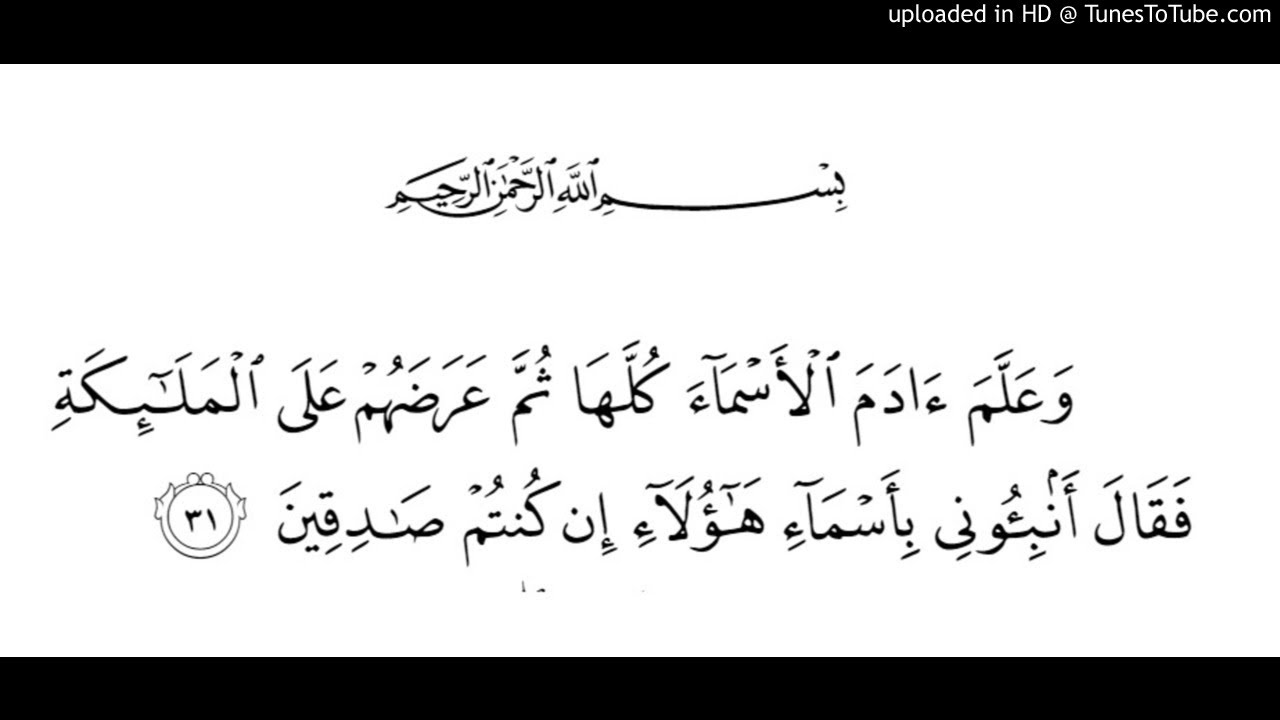 uploaded in HD @ TunesToTube.com
بِسْمِ ٱللَّهِ ٱلرَّحْمَٰنِ ٱلرَّحِيمِ
وَعَلَّمَ ءَادَمَ ٱلْأَسْمَآءَ كُلَّهَا ثُمَّ عَرَضَهُمْ عَلَى ٱلْمَلَٰٓئِكَةِ
فَقَالَ أَنۢبِـُٔونِى بِأَسْمَآءِ هَٰٓؤُلَآءِ إِن كُنتُمْ صَٰدِقِينَ ٣١